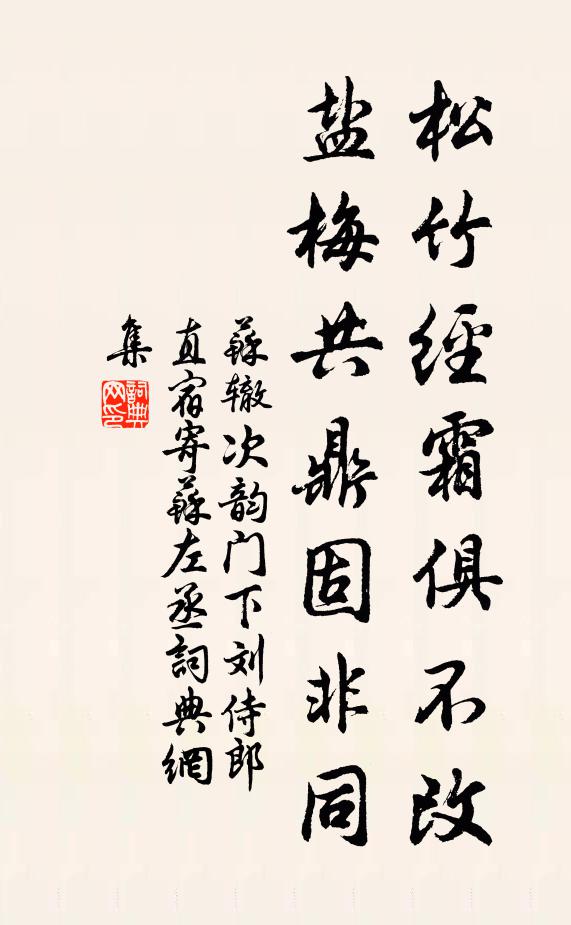 松竹經霜俱不改
盐梅共鼎固非同
蘇辙次韵门下刘侍郎
直宿寄蘇左丞詞典網
集
詞典
网印